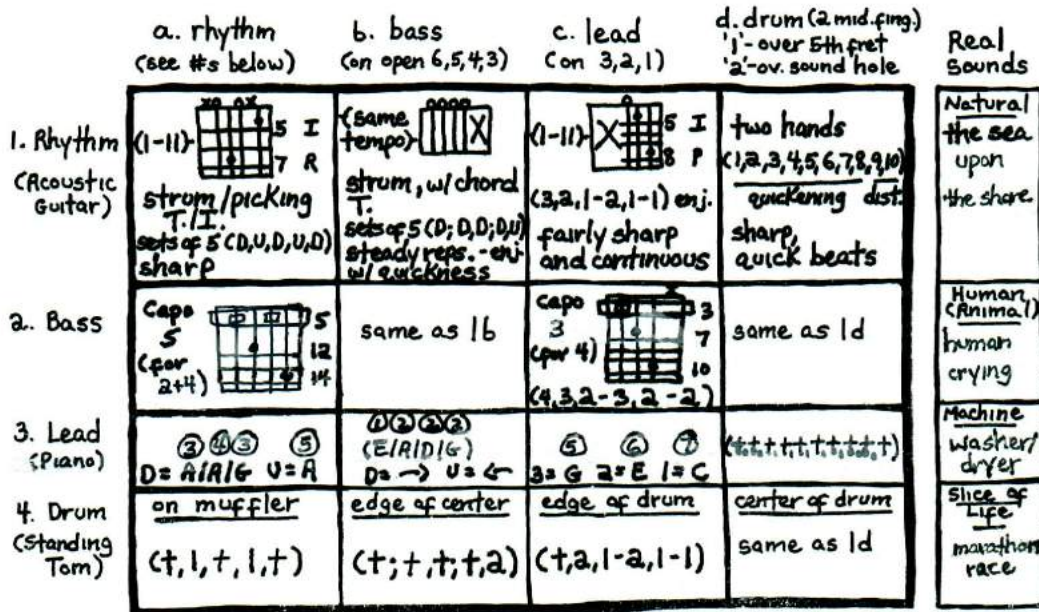 a. rhythm
(see #s below)
b. bass
(on open 6,5,4,3)
c. lead
(on 3,2,1)
d. drum (2 mid.fing.)
'1'-over 5th fret
'2'-ov. sound hole
Real
Sounds
1. Rhythm
(Acoustic
Guitar)
(1-11)
xo ox
5 I
7 R
strum/picking
T./I.
sets of 5 (D,U,D,U,D)
sharp
(same
tempo)
oooo
X
strum, w/ chord
T.
sets of 5 (D; D,D; D,U)
steady reps. - enj.
w/ quickness
(1-11)
o
X
5 I
8 P
(3,2,1-2,1-1) enj.
fairly sharp
and continuous
two hands
(1,2,3,4,5,6,7,8,9,10)
quickening dist.
sharp,
quick beats
Natural
the sea
upon
the shore
2. Bass
Capo
5
(for
2+4)
5
12
14
same as 1b
Capo
3
(for 4)
3
7
10
(4,3,2-3,2-2)
same as 1d
Human,
(Animal)
human
crying
3. Lead
(Piano)
3 4 3 5
D= A/A/G U=A
1 2 2 2
(E/A/D/G)
D= → U= ←
5 6 7
3=G 2=E 1=C
Machine
washer/
dryer
4. Drum
(Standing
Tom)
on muffler
(t,1,t,1,t)
edge of center
(t; t,t; t,2)
edge of drum
(t,2,1-2,1-1)
center of drum
same as 1d
Slice of
Life
marathon
race